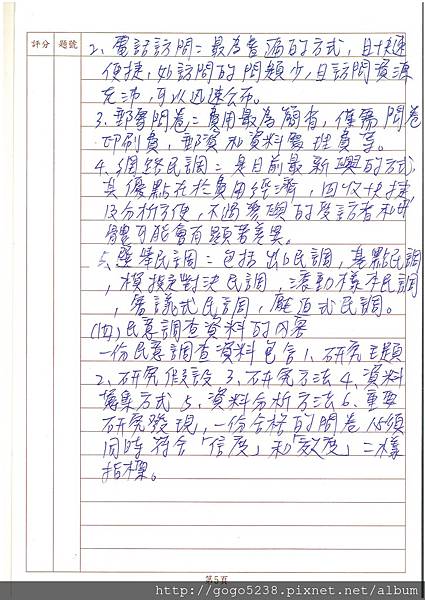 評分 題號
2、電話訪問：最為普遍的方式，且快速
便捷，如訪問的問題少，且訪問資源
充沛，可以迅速公布。
3、郵寄問卷：費用最為節省，僅需問卷
印刷費，郵資和資料處理費等。
4、網路民調：是目前最新興的方式
其優點在於費用經濟，回收快捷
及分析方便，不過實與的受訪者和母
體可能會有顯著差異。
5、選舉民調：包括出口民調，基點民調
，模擬對決民調，滾動樣本民調
，審議式民調，壓迫式民調。
(四)民意調查資料的內容
一份民意調查資料包含1、研究主題
2、研究假設 3、研究方法 4、資料
蒐集方式 5、資料分析方法 6、重要
研究發現，一份合格的問卷必須
同時符合「信度」和「效度」二樣
指標。
第5頁
http://gogo5238.pixnet.net/album